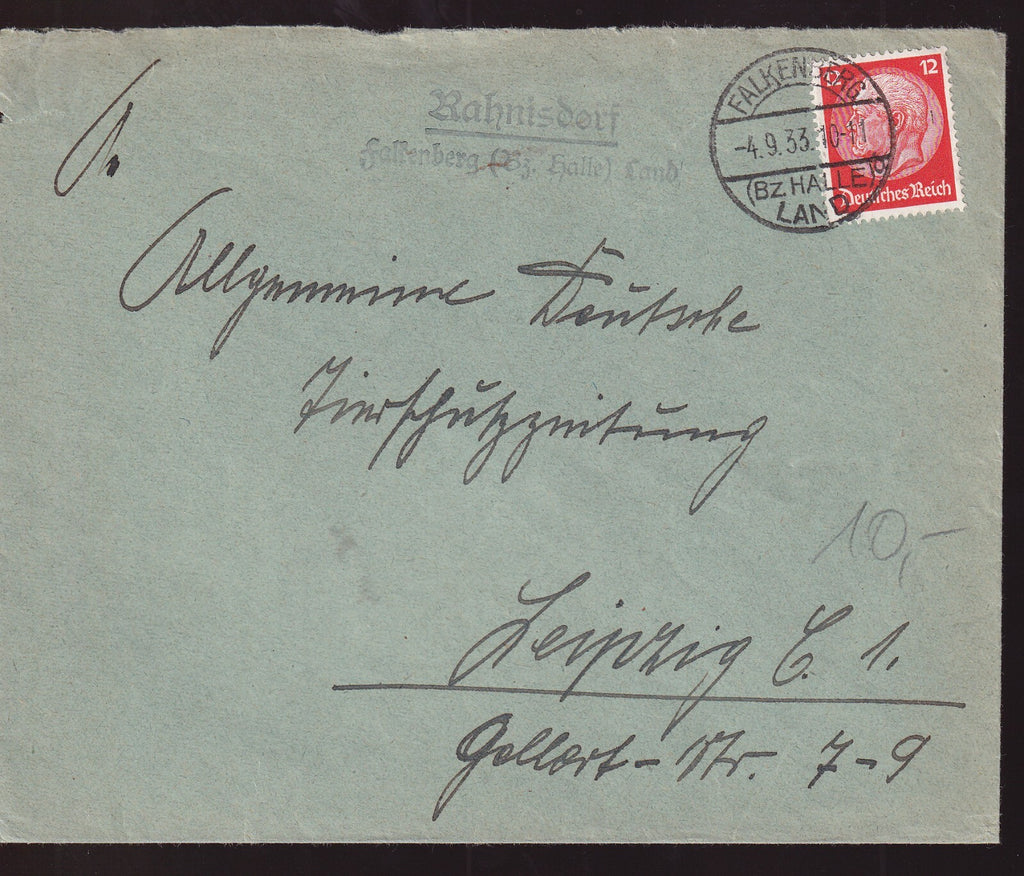 Rahnisdorf
Falkenberg (Bz. Halle) Land
FALKENBERG
-4.9.33.10-11
b
(BZ. HALLE)
LAND
12
12
Deutsches Reich
A.
Allgemeine Deutsche
Tierschutzzeitung
10,-
Leipzig C. 1.
Gellert-Str. 7-9